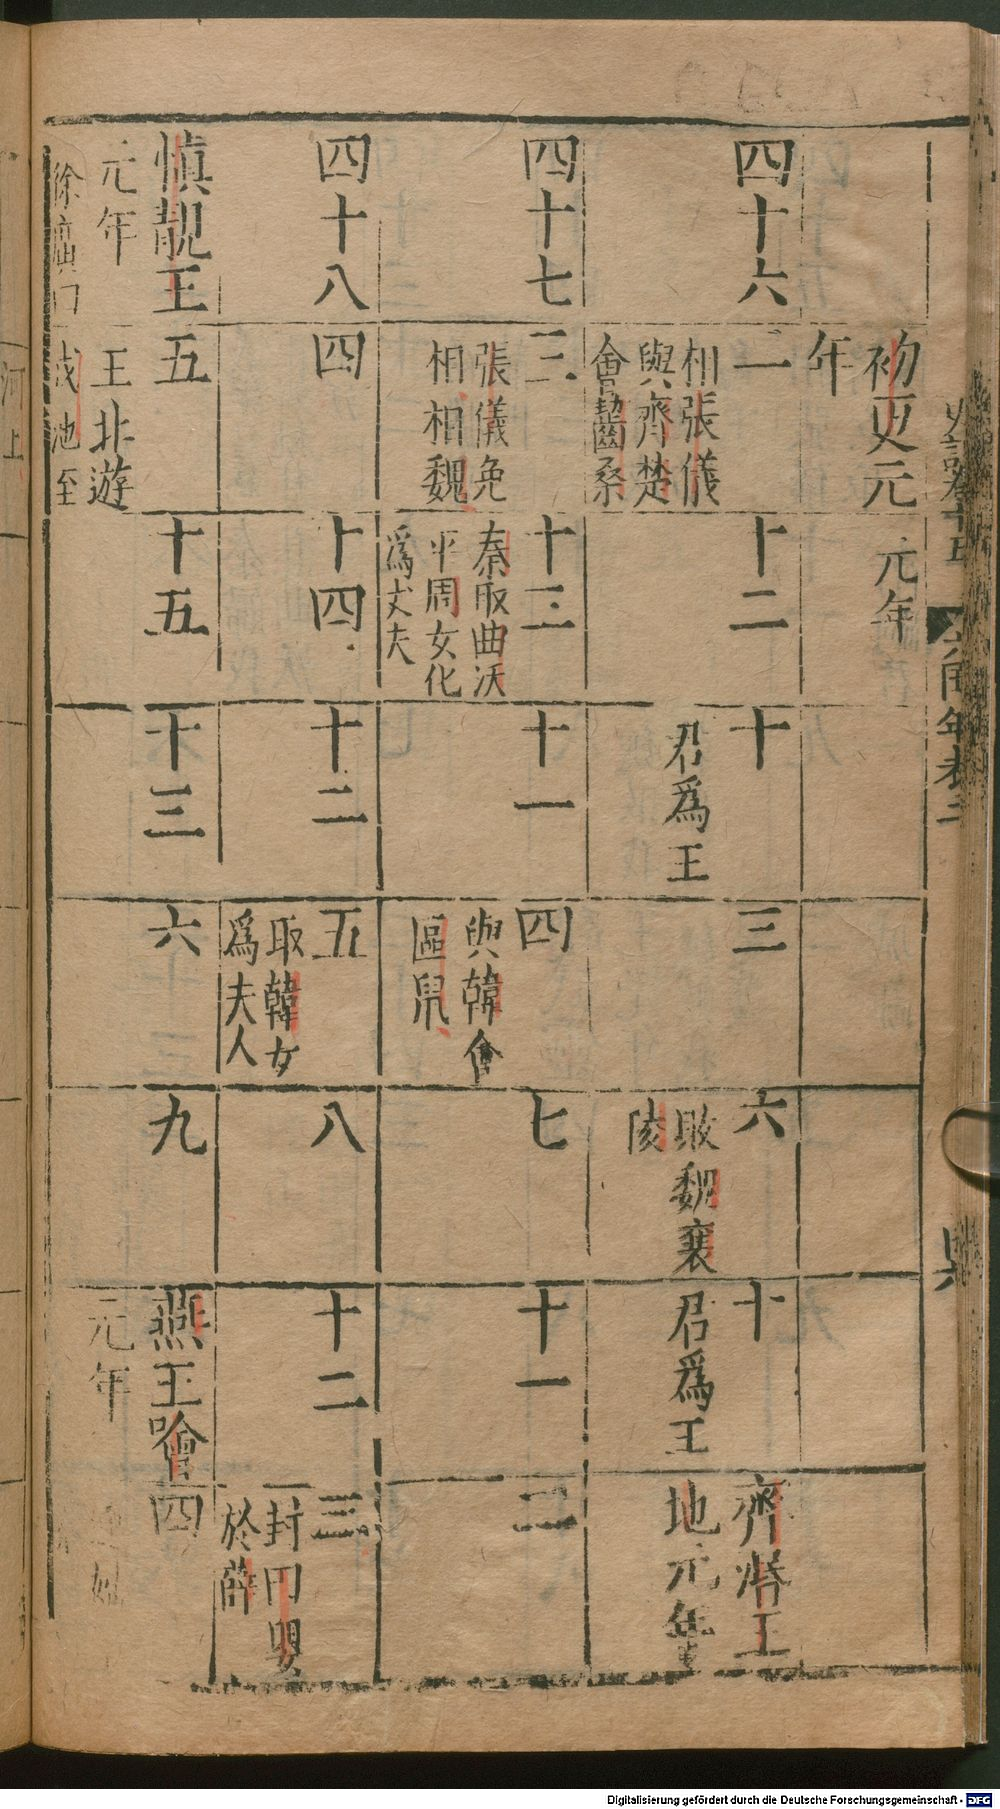 初更元
年
元年
四十六
二
相張儀
與齊楚
會齧桑
十二
十
君爲王
三
六
敗魏襄
陵
十
君爲王
齊湣王
地元年
四十七
三
張儀免
相相魏
十三
秦取曲沃
平周女化
爲丈夫
十一
四
與韓會
區鼠
七
十一
二
四十八
四
十四
十二
五
取韓女
爲夫人
八
十二
三
封田嬰
於薛
慎靚王
元年
徐廣曰
五
王北遊
戎池至
河上
十五
十三
六
九
燕王噲
元年
四
Digitalisierung gefördert durch die Deutsche Forschungsgemeinschaft - DFG